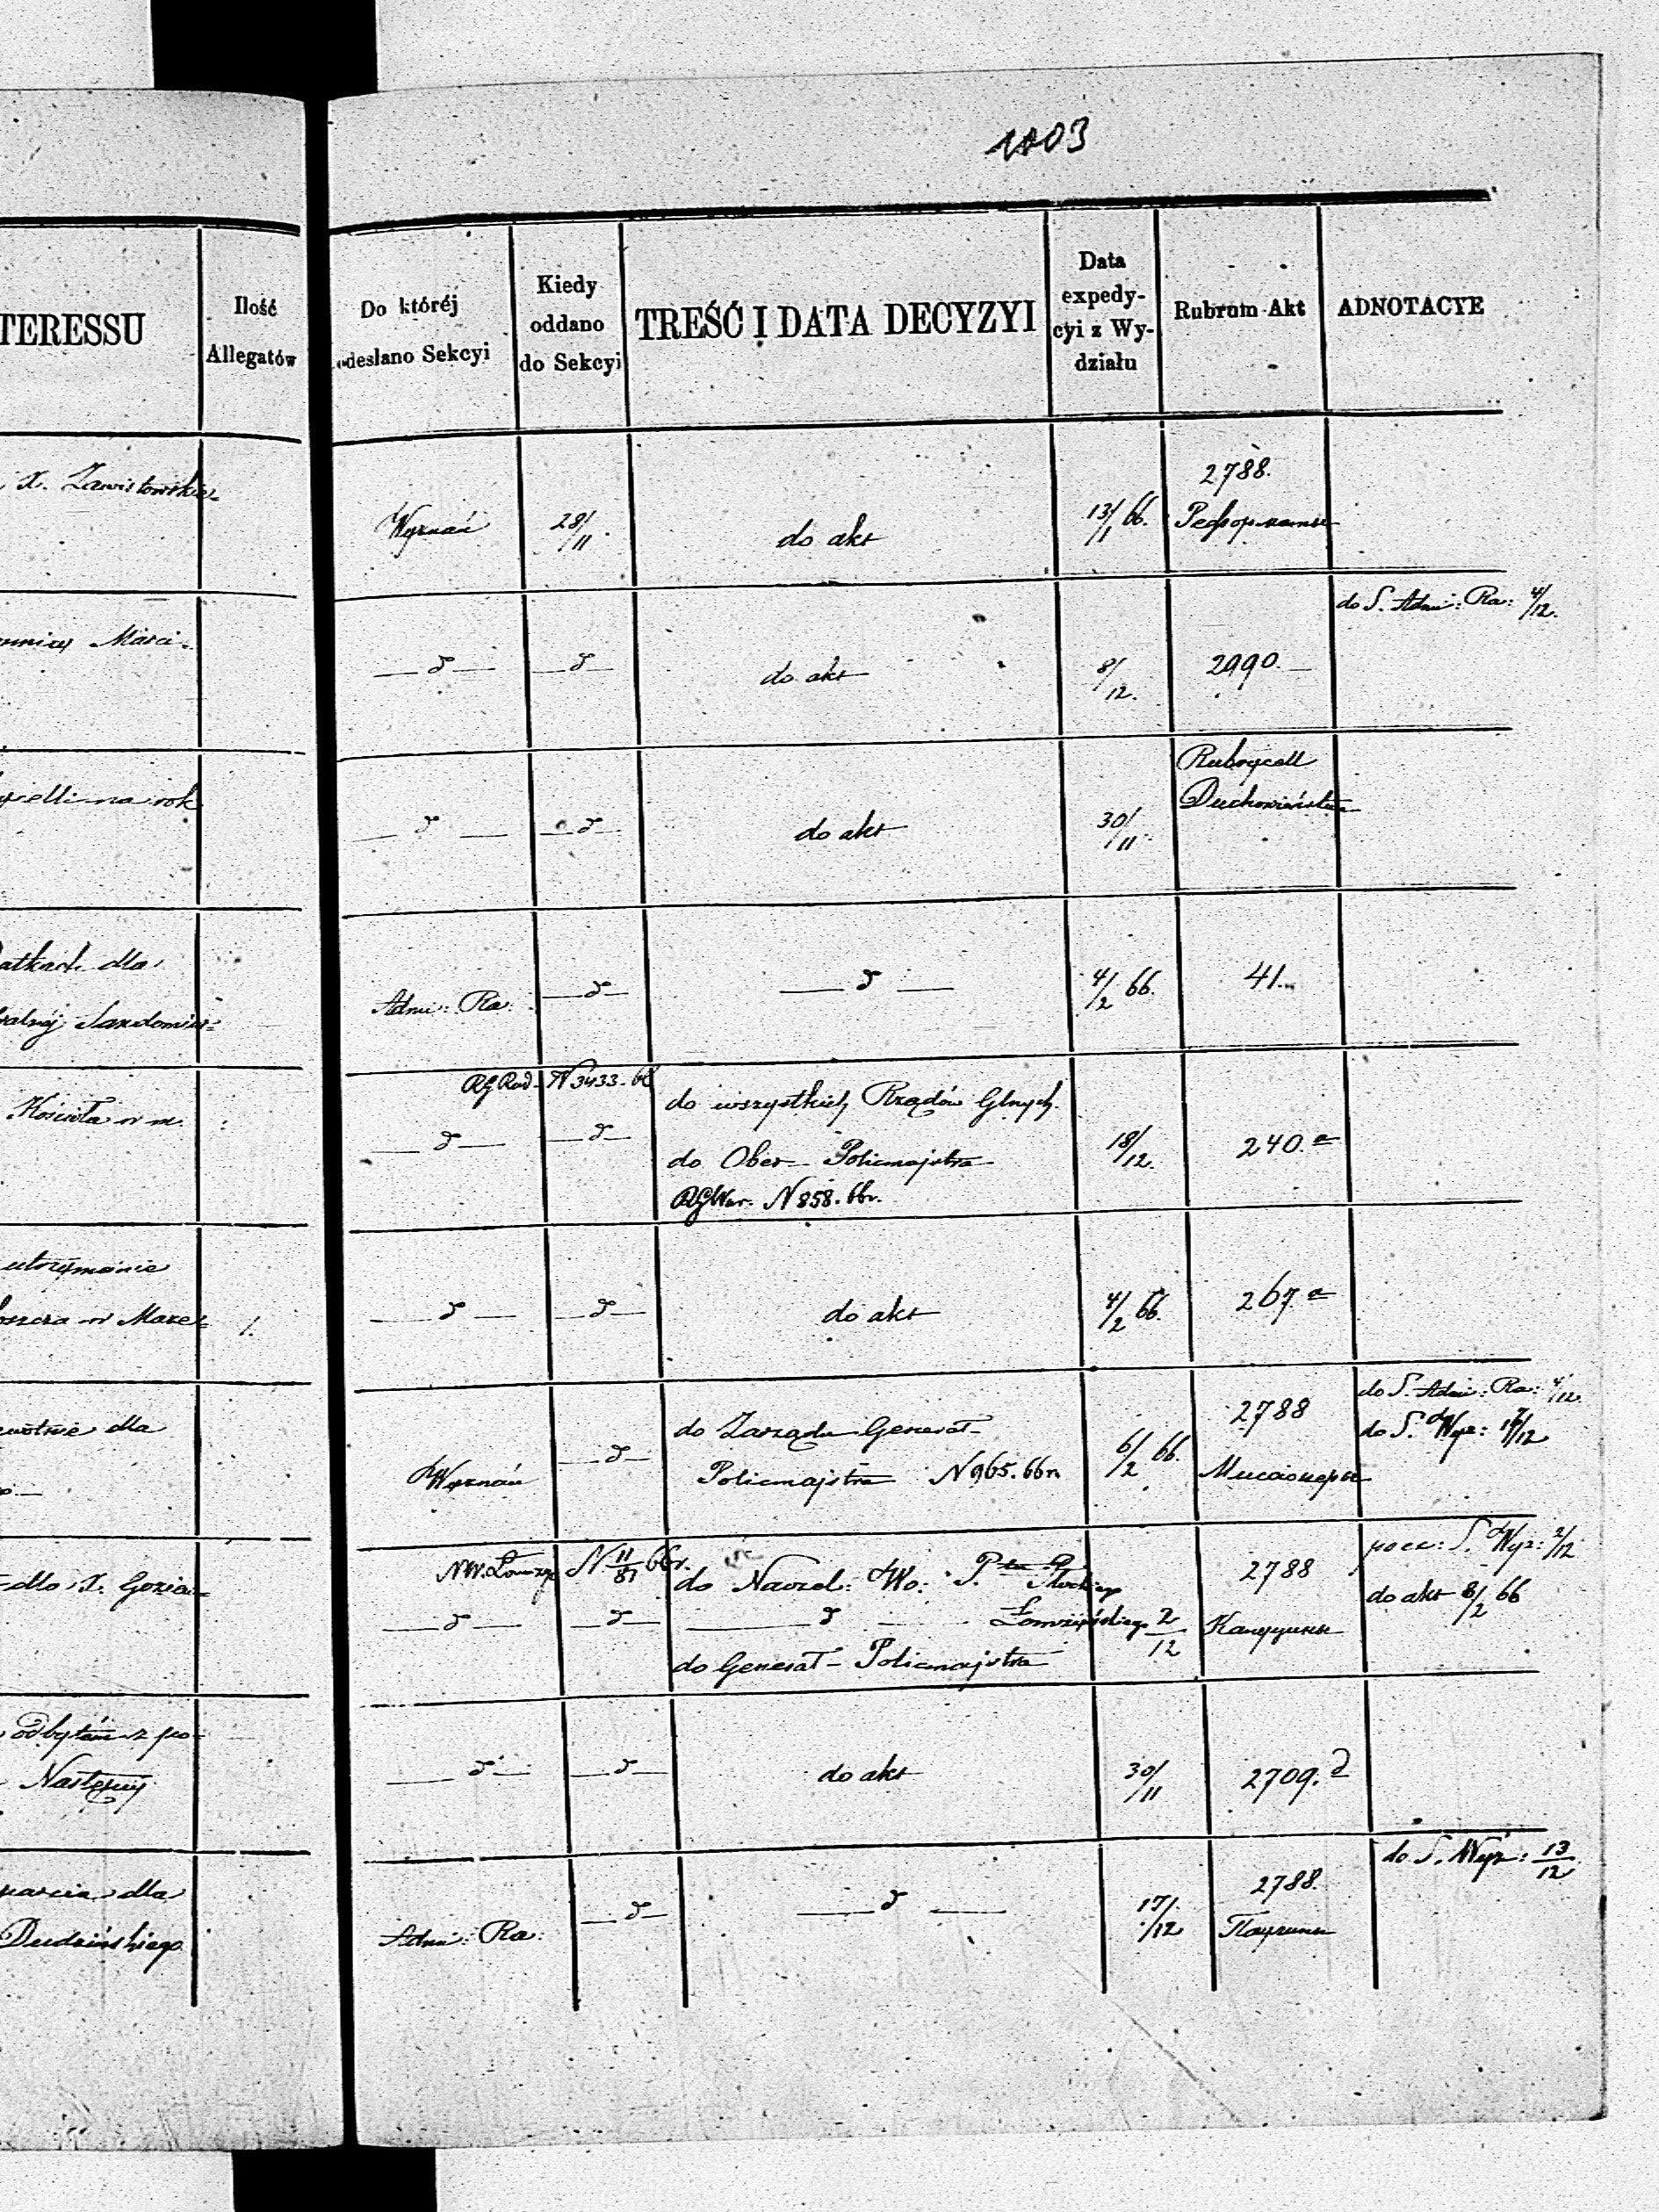 1003
TERESSU
Ilość
Allegatów
Do któréj
odesłano Sekcyi
Kiedy
oddano
do Sekcyi
TREŚĆ I DATA DECYZYI
Data
expedy-
cyi z Wy-
działu
Rubrum Akt
ADNOTACYE
X. Zawistowskie-
Wyznań
28/11
do akt
13/1 66.
2788.
Marci-
— d —
— d —
do akt
8/12.
2990. —
do S. Adm: Ra: 4/12.
na rok
— d —
— d —
do akt
30/11
Rubrycell
Duchowieństwa
datkach dla
Sandomier=
Adm: Ra:
— d —
— d —
4/2 66.
41.
Kościoła w m.
RG Rad. N 3433. 66
— d —
— d —
do wszystkich Rządów Glnych.
do Ober- Policmajstra
RGWar. N 858. 66r.
18/12.
240. a
utrzymanie
w Marez
1.
— d —
— d —
do akt
4/2 66.
267. a
dla
Wyznań
— d —
do Zarządu Generał-
Policmajstra N 965. 66r.
6/2 66.
2788
Мисионеры
do S. Adm: Ra: 4/12.
do S. Wyz: /12
dla X. Gozia=
NW. Łomzyń N 11/81 66r.
— d —
— d —
do Naczel: Wo: P. Płockiego
— d — Łomżyńskiego
do Generał- Policmajstra
2/12
2788
Капуцины
S. Wyz: 2/12
do akt 8/2 66
odbytém z po-
— d —
— d —
do akt
30/11
2709. d
parcia dla
Dudzińskiego
Adm: Ra:
— d —
— d —
17/12
2788.
Паулины
do S. Wyz: 13/12